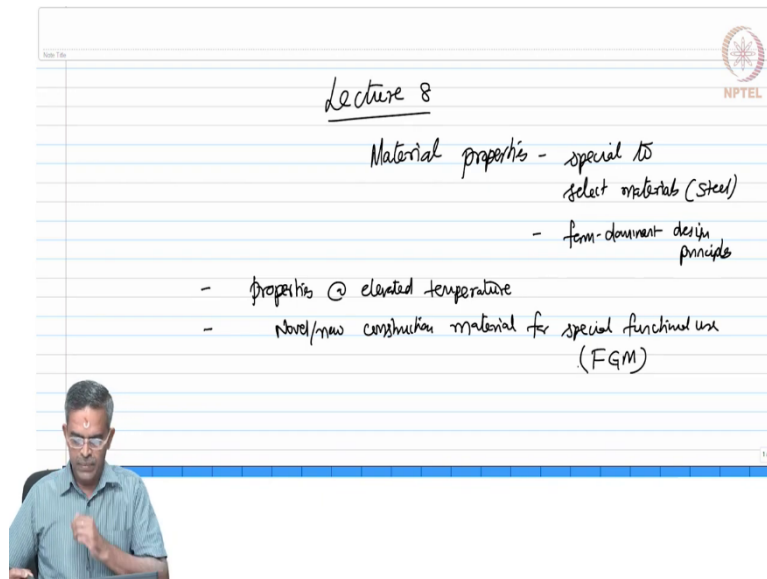 Note Title
NPTEL
Lecture 8
Material properties - special to
select materials (Steel)
- form-dominant design
principles
- properties @ elevated temperature
- Novel/new construction material for special functional use
(FGM)